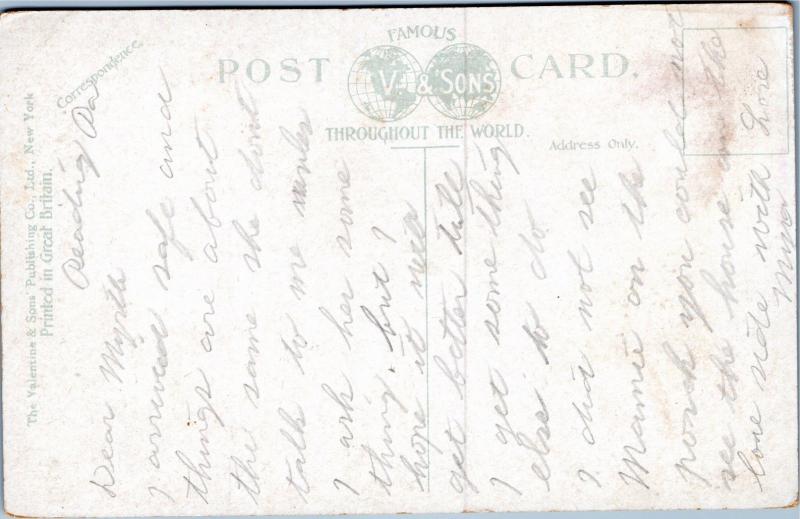 FAMOUS
POST CARD.
V. & SONS
THROUGHOUT THE WORLD.
Correspondence.
Address Only.
The Valentine & Sons' Publishing Co., Ltd., New York
Printed in Great Britain.
Reading Pa
Dear Myrtle
I arrived safe and
things are about
the same she dont
talk to me unless
I ask her some
thing. but I
hope it will
get better till
I get some thing
else to do
I did not see
Mamie on the
porch you could not
see the house on the
lore side with Love